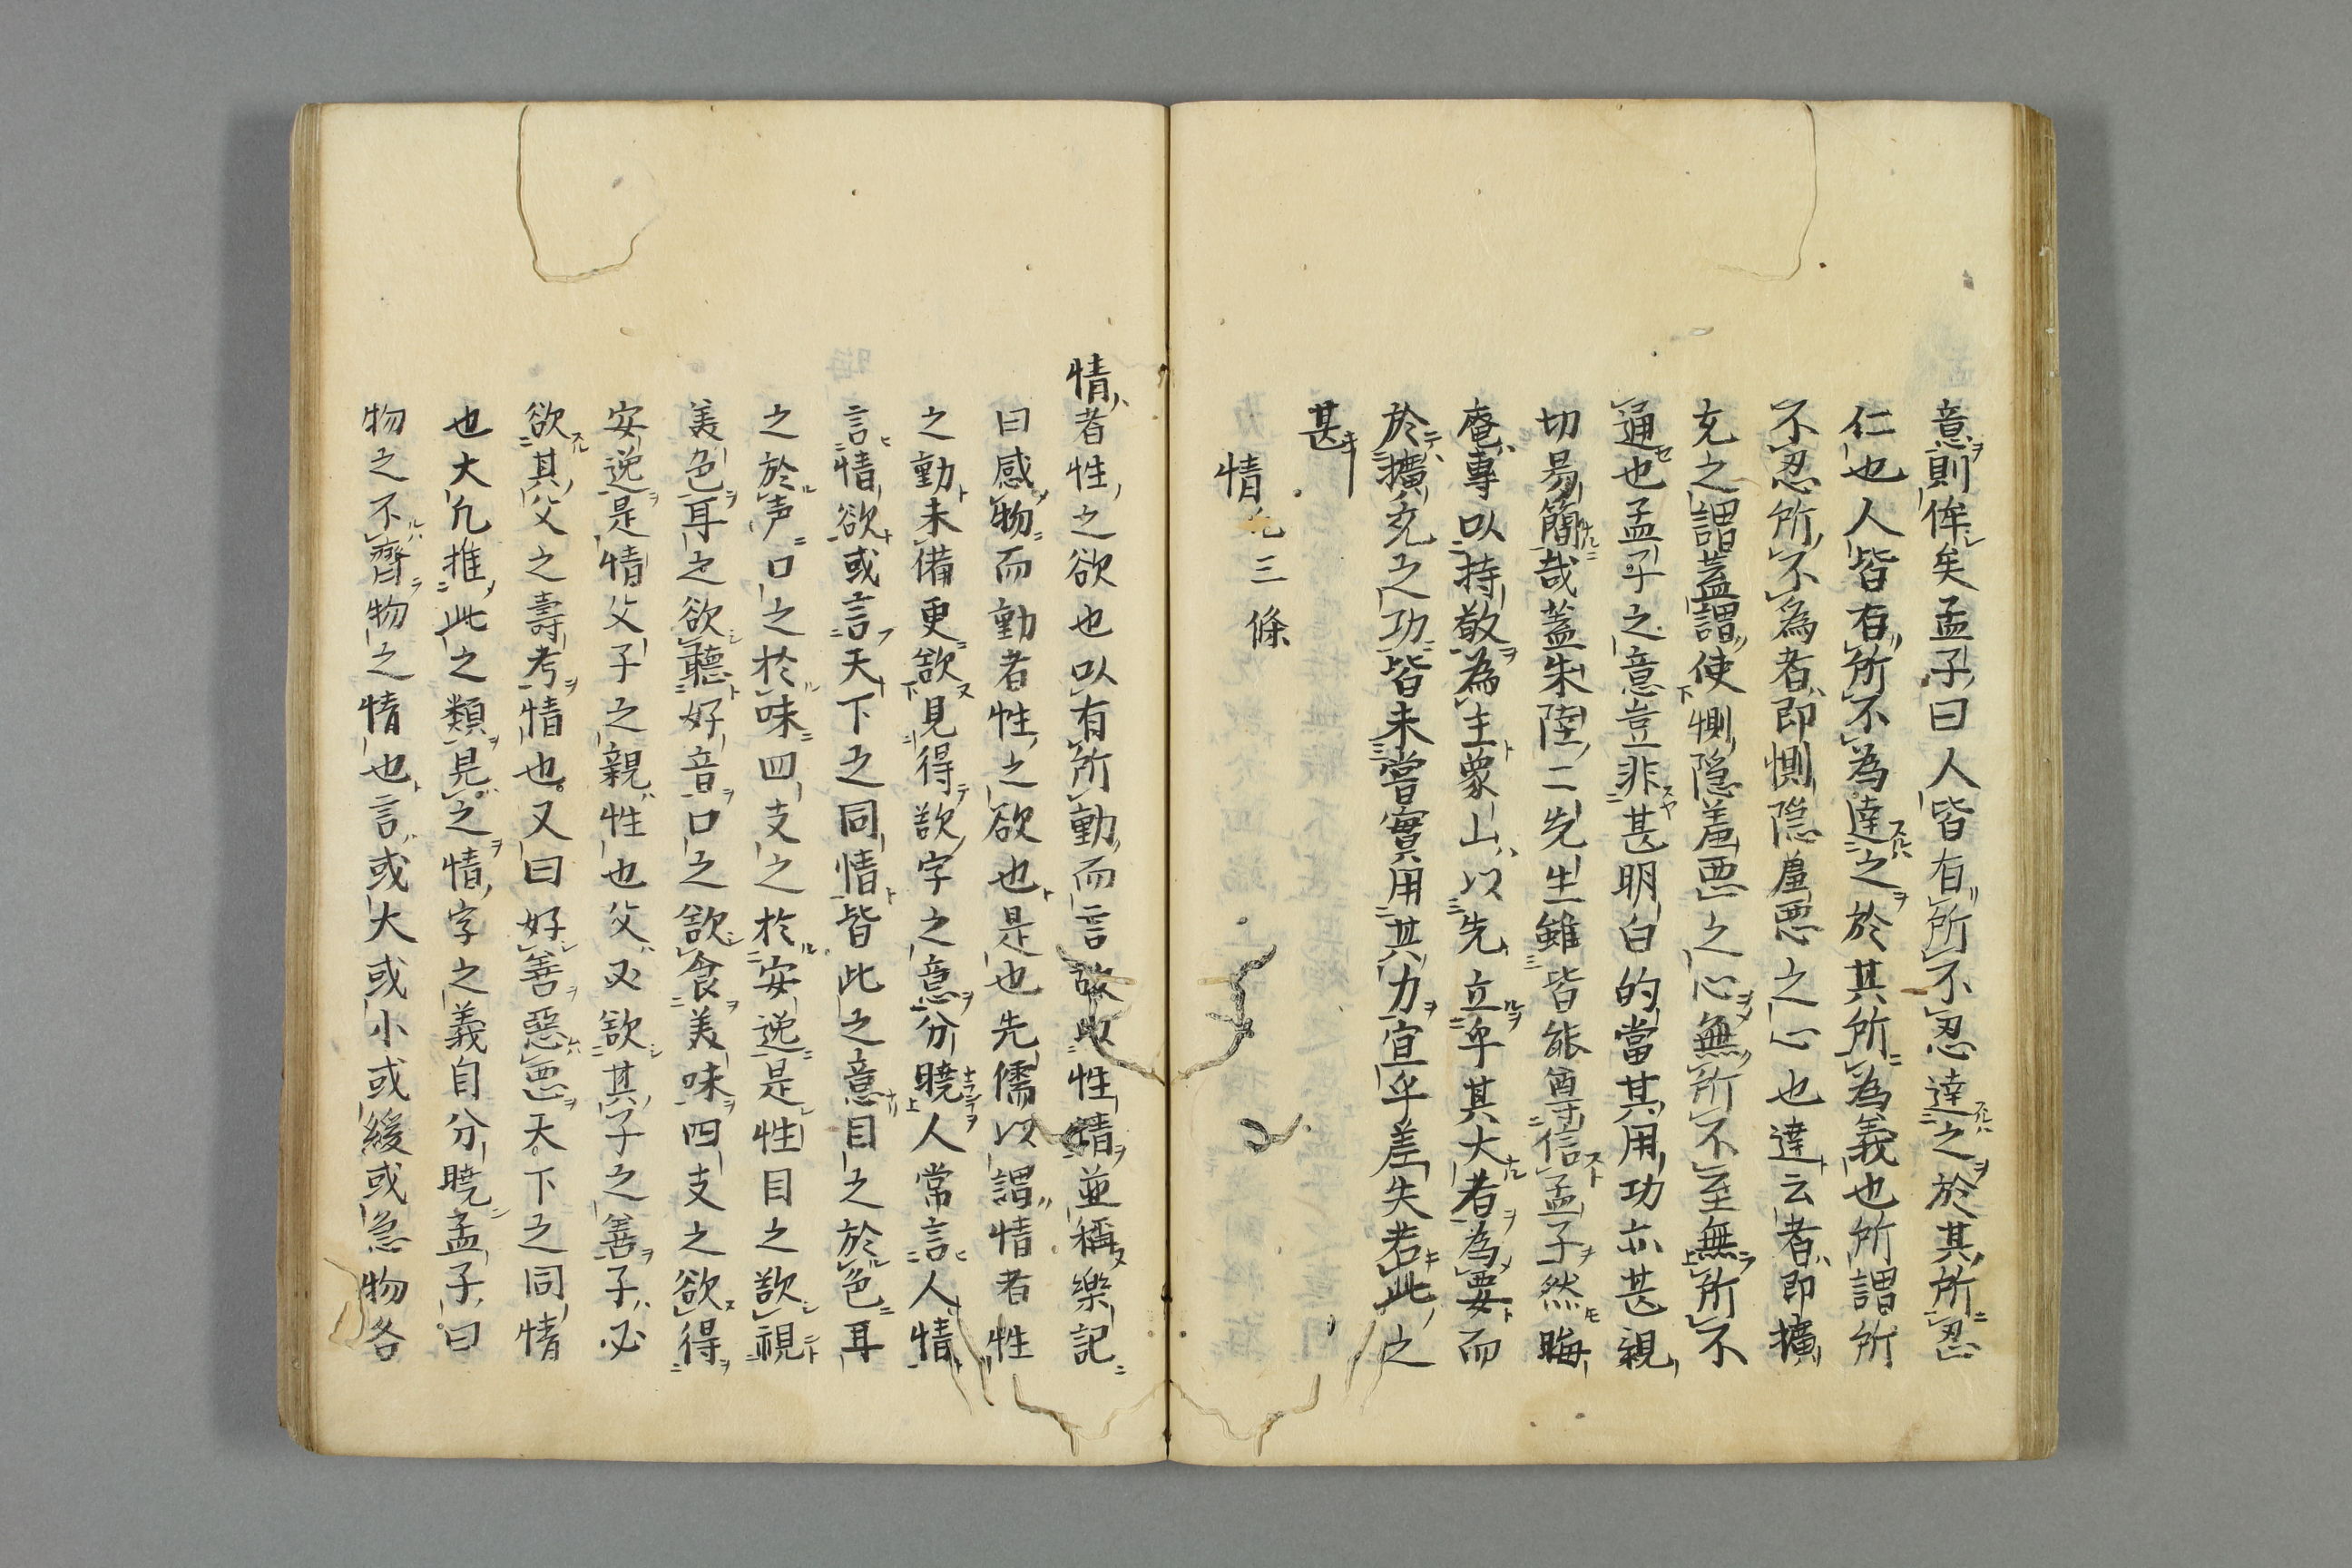 意則侔矣孟子曰人皆有所不忍達之於其所忍
仁也人皆有所不為達之於其所為義也所謂所
不忍所不為者即惻隠羞悪之心也達云者即擴
充之謂蓋謂使惻隠羞悪之心無所不至無所不
通也孟子之意豈非甚明白的當其用功亦甚親
切易簡哉蓋朱陸二先生雖皆能尊信孟子然晦
庵専以持敬為主象山以先立乎其大者為要而
於擴充之功皆未嘗實用其力宜乎差失若此之
甚
情凡三條
情者性之欲也以有所動而言故以性情並稱樂記
曰感物而動者性之欲也是也先儒以謂情者性
之動未備更欲見得欲字之意分曉人常言人情
言情欲或言天下之同情皆此之意目之於色耳
之於声口之於味四支之於安逸是性目之欲視
美色耳之欲聽好音口之欲食美味四支之欲得
安逸是情父子之親性也父必欲其子之善子必
欲其父之壽考情也又曰好善惡悪天下之同情
也大凡推此之類見之情字之義自分曉孟子曰
物之不齊物之情也言或大或小或緩或急物各